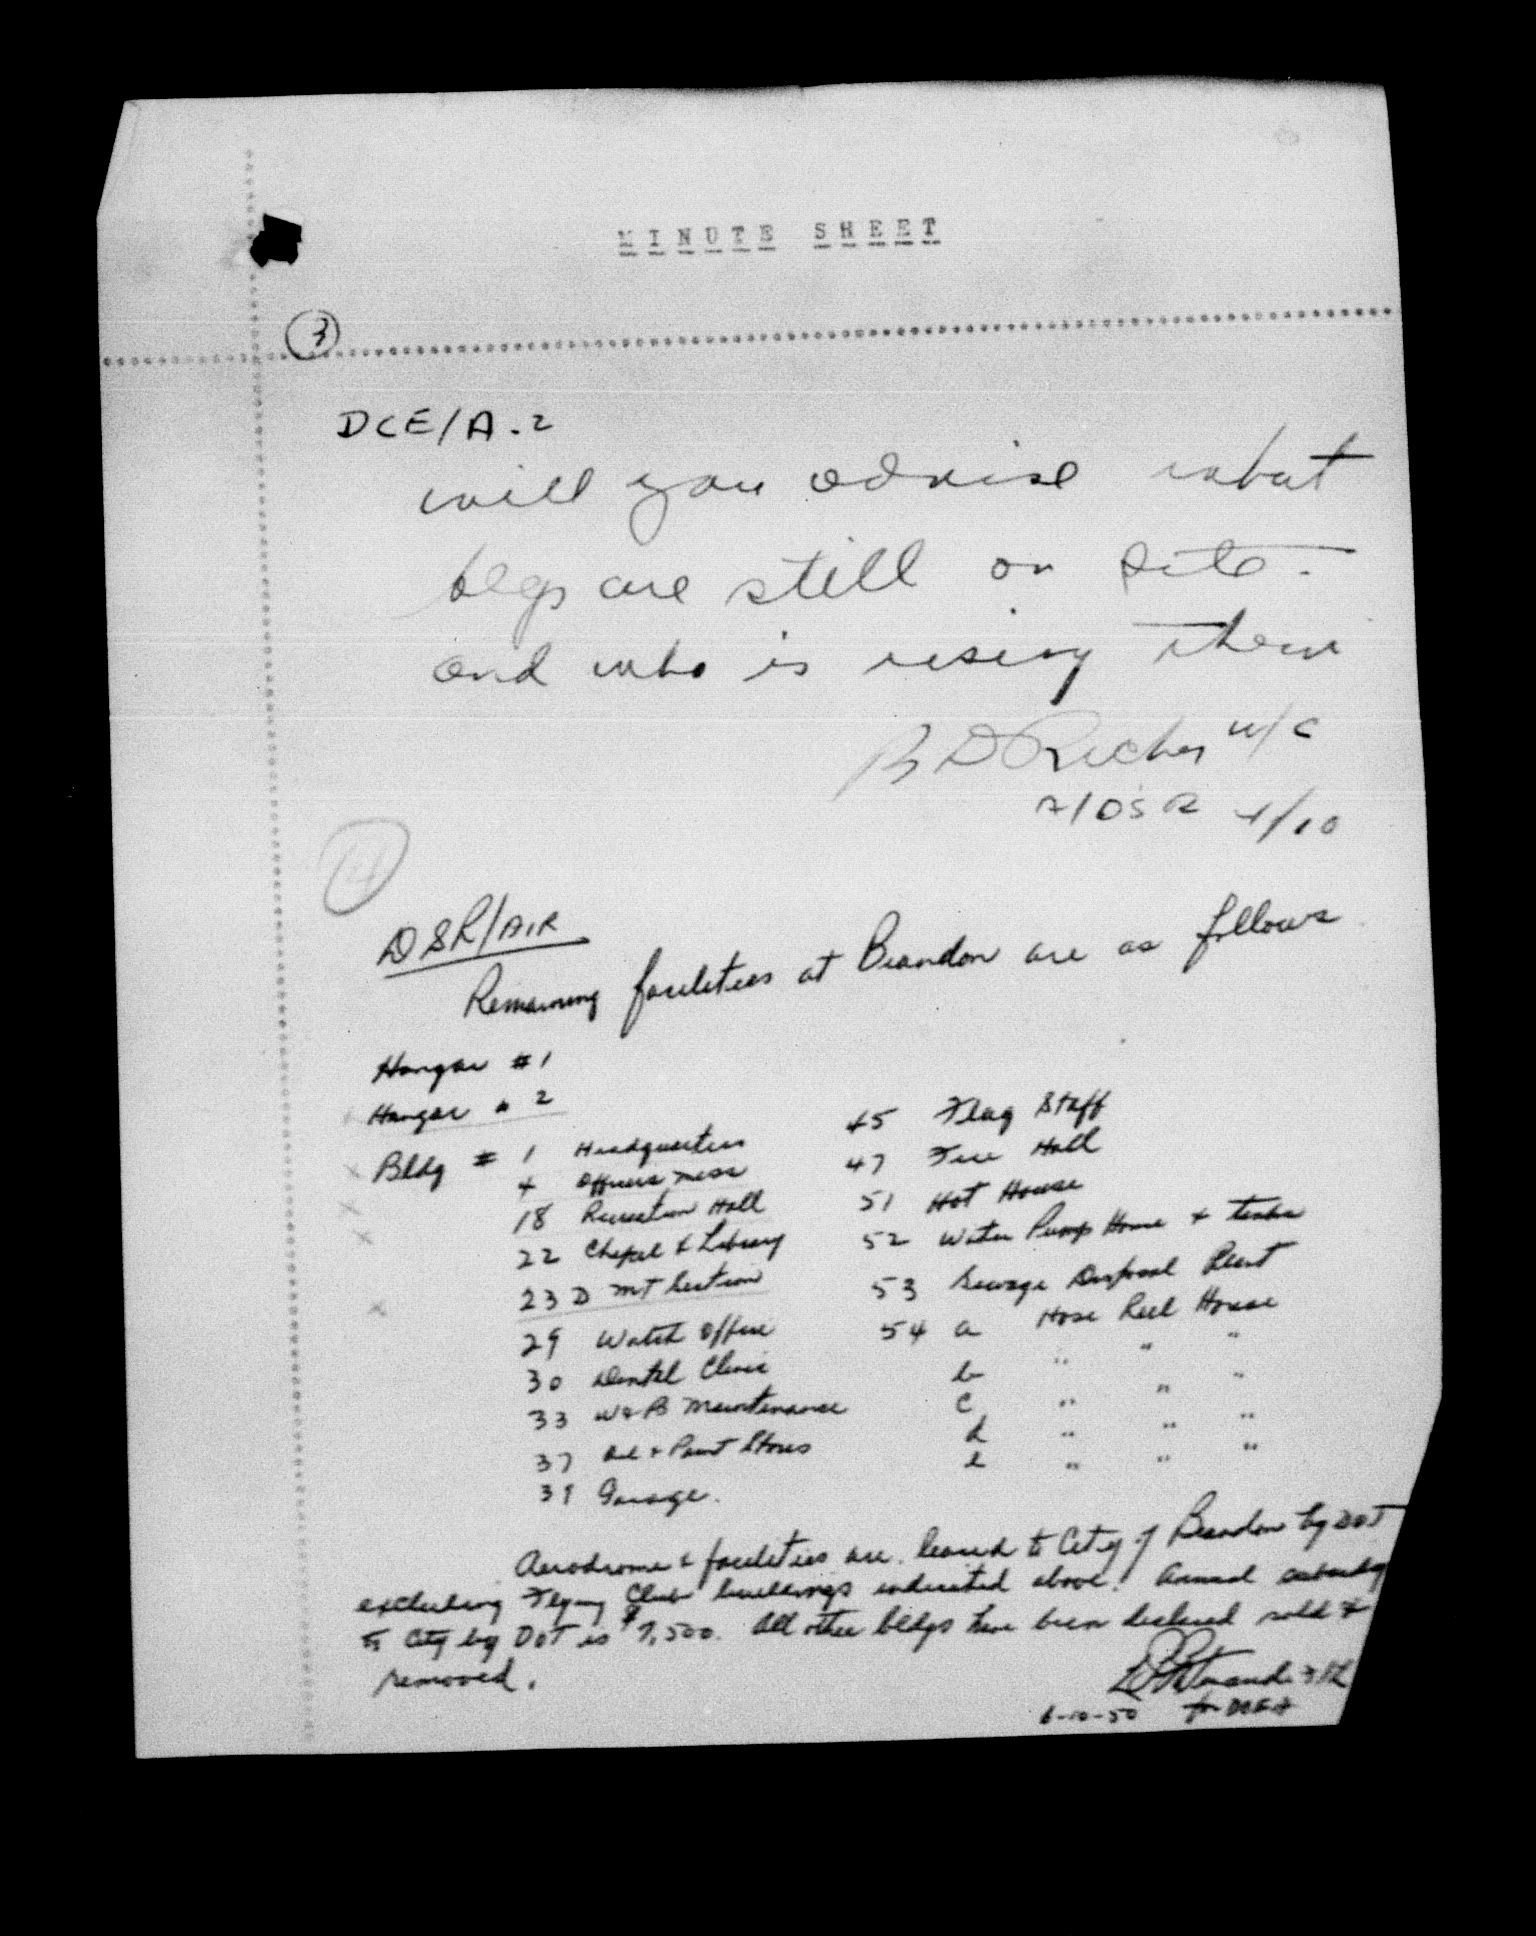 MINUTE SHEET
3
DCE/A.2
will you advise what
blgs are still on site.
and who is using them
B D W/C
A/DSR 4/10
4
DSR/AIR
Remaining facilities at Brandon are as follows
Hangar #1
Hangar " 2
Bldg # 1 Headquarters
4 Officers Mess
18 Recreation Hall
22 Chapel & Library
23 D MT Section
29 Watch Office
30 Dental Clinic
33 W&B Maintenance
37 Oil & Paint Stores
39 Garage.
45 Flag Staff
47 Fire Hall
51 Hot House
52 Water Pump House & tanks
53 Sewage Disposal Plant
54 a Hose Reel House
b " " "
c " " "
d " " "
e " " "
Aerodrome & facilities are leased to City of Brandon by DOT
excluding Flying Club buildings indicated above. Annual subsidy
to City by DOT is $7,500. All other bldgs have been declared sold &
removed.
F/L
6-10-50 for DCEA